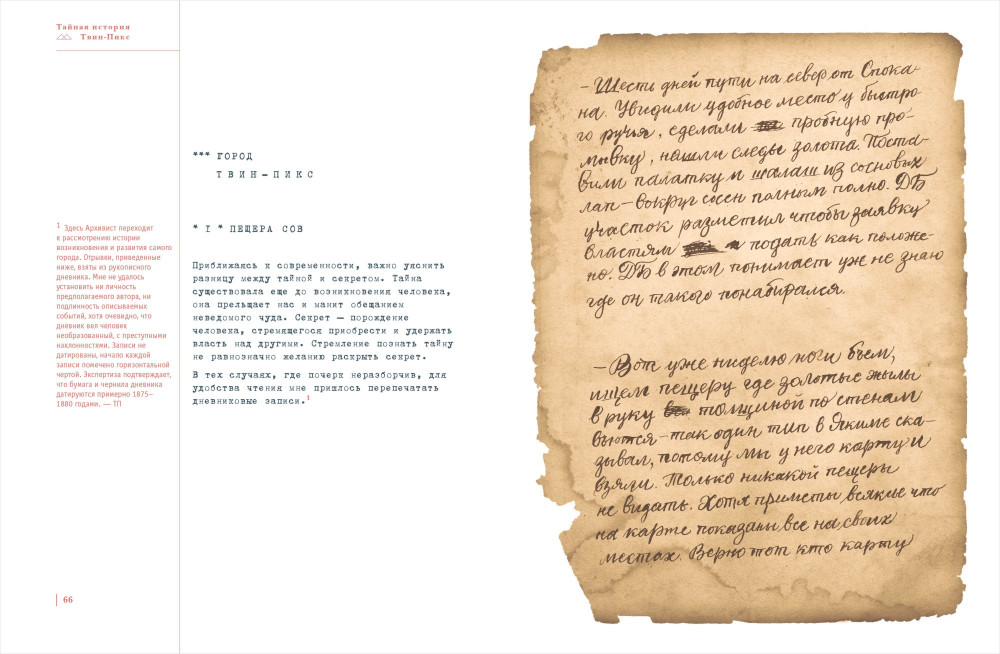 Тайная история
Твин-Пикс
*** ГОРОД
ТВИН-ПИКС
* I * ПЕЩЕРА СОВ
1 Здесь Архивист переходит
к рассмотрению истории
возникновения и развития самого
города. Отрывки, приведенные
ниже, взяты из рукописного
дневника. Мне не удалось
установить ни личность
предполагаемого автора, ни
подлинность описываемых
событий, хотя очевидно, что
дневник вел человек
необразованный, с преступными
наклонностями. Записи не
датированы, начало каждой
записи помечено горизонтальной
чертой. Экспертиза подтверждает,
что бумага и чернила дневника
датируются примерно 1875–
1880 годами. — ТП
Приближаясь к современности, важно уяснить
разницу между тайной и секретом. Тайна
существовала еще до возникновения человека,
она прельщает нас и манит обещанием
неведомого чуда. Секрет — порождение
человека, стремящегося приобрести и удержать
власть над другими. Стремление познать тайну
не равнозначно желанию раскрыть секрет.
В тех случаях, где почерк неразборчив, для
удобства чтения мне пришлось перепечатать
дневниковые записи.1
66
– Шесть дней пути на север от Спока-
на. Увидили удобное место у быстро-
го ручья, сделали пробную про-
мывку, нашли следы золота. Поста-
вили палатку и шалаш из сосновых
лап – вокруг сосен полным полно. ДБ
участок разметил чтобы заявку
властям подать как положе-
но. ДБ в этом понимает уже не знаю
где он такого понабирался.
– Вот уже ниделю ноги бьем,
ищем пещеру где золотые жилы
в руку толщиной по стенам
вьются – так один тип в Якиме ска-
зывал, потому мы у него карту и
взяли. Только никакой пещеры
не видать. Хотя приметы всякие что
на карте показаны все на своих
местах. Верно тот кто карту